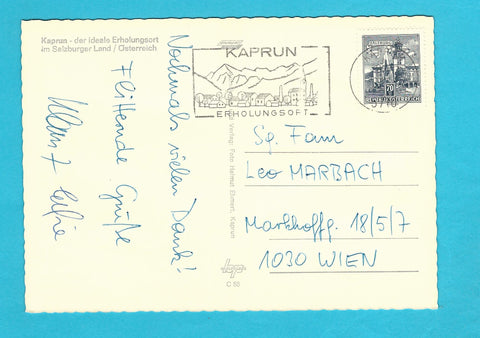 Kaprun - der ideale Erholungsort
im Salzburger Land / Österreich
Nochmals vielen Dank!
Flitternde Grüße
KAPRUN
ERHOLUNGSORT
70
REPUBLIK ÖSTERREICH
5710
Verlag: Foto Helmut Ehmert, Kaprun
C 50
Sg. Fam
Leo MARBACH
Markhoffg. 18/5/7
1030 WIEN